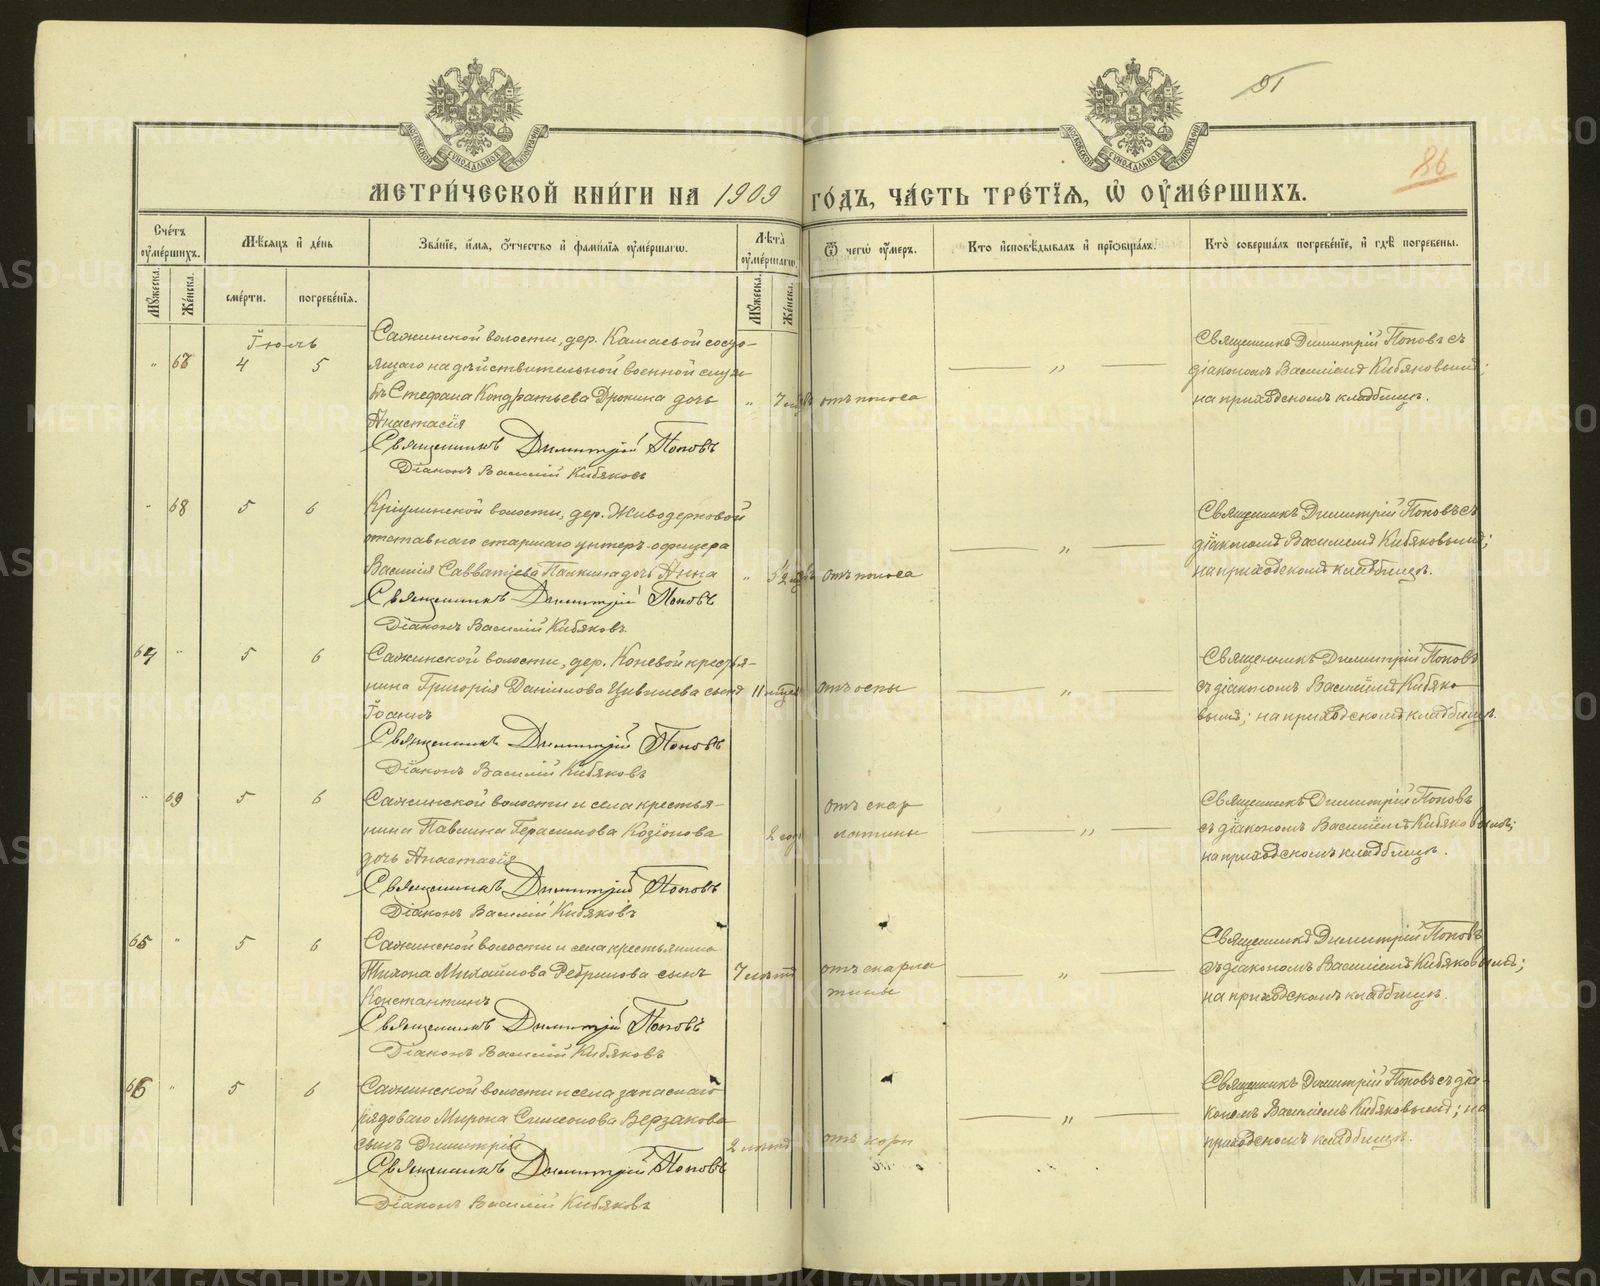 91
86
МЕТРИ́ЧЕСКОЙ КНИ́ГИ НА 1909 ГО́ДЪ, ЧА́СТЬ ТРЕ́ТІЯ, Ѡ ОУ҆МЕ́РШИХЪ.
Сче́тъ оу҆ме́ршихъ.
Мѣсяцъ и҆ де́нь
Зва́ніе, и҆́мя, ѻ҆́тчество и҆ фами́лія оу҆ме́ршагѡ.
Лѣта̀ оу҆ме́ршагѡ.
Ѿ чегѡ̀ оу҆́меръ.
Кто̀ и҆сповѣ́дывалъ и҆ прїѡбща́лъ.
Кто̀ соверша́лъ погребе́ніе, и҆ гдѣ̀ погребены.
Му́жеска.
Же́нска.
сме́рти.
погребе́нїя.
Му́жеска.
Же́нска.
Іюль
Сажинской волости, дер. Камаевой состо-
" 67 4 5 ящаго на дѣйствительной военной служ-
бѣ Стефана Кондратьева Дрокина дочь " 7 мѣс. отъ поноса
Анастасія
Священникъ Димитрій Поповъ
Діаконъ Василій Кибяковъ
Священникъ Димитрій Поповъ съ
діакономъ Василіемъ Кибяковымъ;
на приходскомъ кладбищѣ.
" 68 5 6 Кріулинской волости, дер. Живодерковой
отставного старшаго унтеръ-офицера
Василія Савватіева Панкина дочь Анна " отъ поноса
Священникъ Димитрій Поповъ
Діаконъ Василій Кибяковъ.
Священникъ Димитрій Поповъ съ
діакономъ Василіемъ Кибяковымъ;
на приходскомъ кладбищѣ.
64 " 5 6 Сажинской волости, дер. Коневой крестья-
нина Григорія Данилова Цивилева сынъ 11 отъ оспы
Іоаннъ
Священникъ Димитрій Поповъ
Діаконъ Василій Кибяковъ
Священникъ Димитрій Поповъ
съ діакономъ Василіемъ Кибяко-
вымъ; на приходскомъ кладбищѣ.
" 69 5 6 Сажинской волости и села крестья-
нина Павлина Герасимова Козіонова 2 год.
дочь Анастасія
отъ скар
латины
Священникъ Димитрій Поповъ
Діаконъ Василій Кибяковъ
Священникъ Димитрій Поповъ
съ діакономъ Василіемъ Кибяковымъ;
на приходскомъ кладбищѣ.
65 " 5 6 Сажинской волости и села крестьянина
Тихона Михайлова Ребринова сынъ 7 лѣтъ отъ скарла
Константинъ тины
Священникъ Димитрій Поповъ
Діаконъ Василій Кибяковъ
Священникъ Димитрій Поповъ
съ діакономъ Василіемъ Кибяковымъ;
на приходскомъ кладбищѣ.
66 " 5 6 Сажинской волости и села запаснаго
рядоваго Мирона Симеонова Верзакова
сынъ Димитрій 2 отъ кори
Священникъ Димитрій Поповъ
Діаконъ Василій Кибяковъ
Священникъ Димитрій Поповъ съ діа-
кономъ Василіемъ Кибяковымъ; на
приходскомъ кладбищѣ.
METRIKI.GASO-URAL.RU